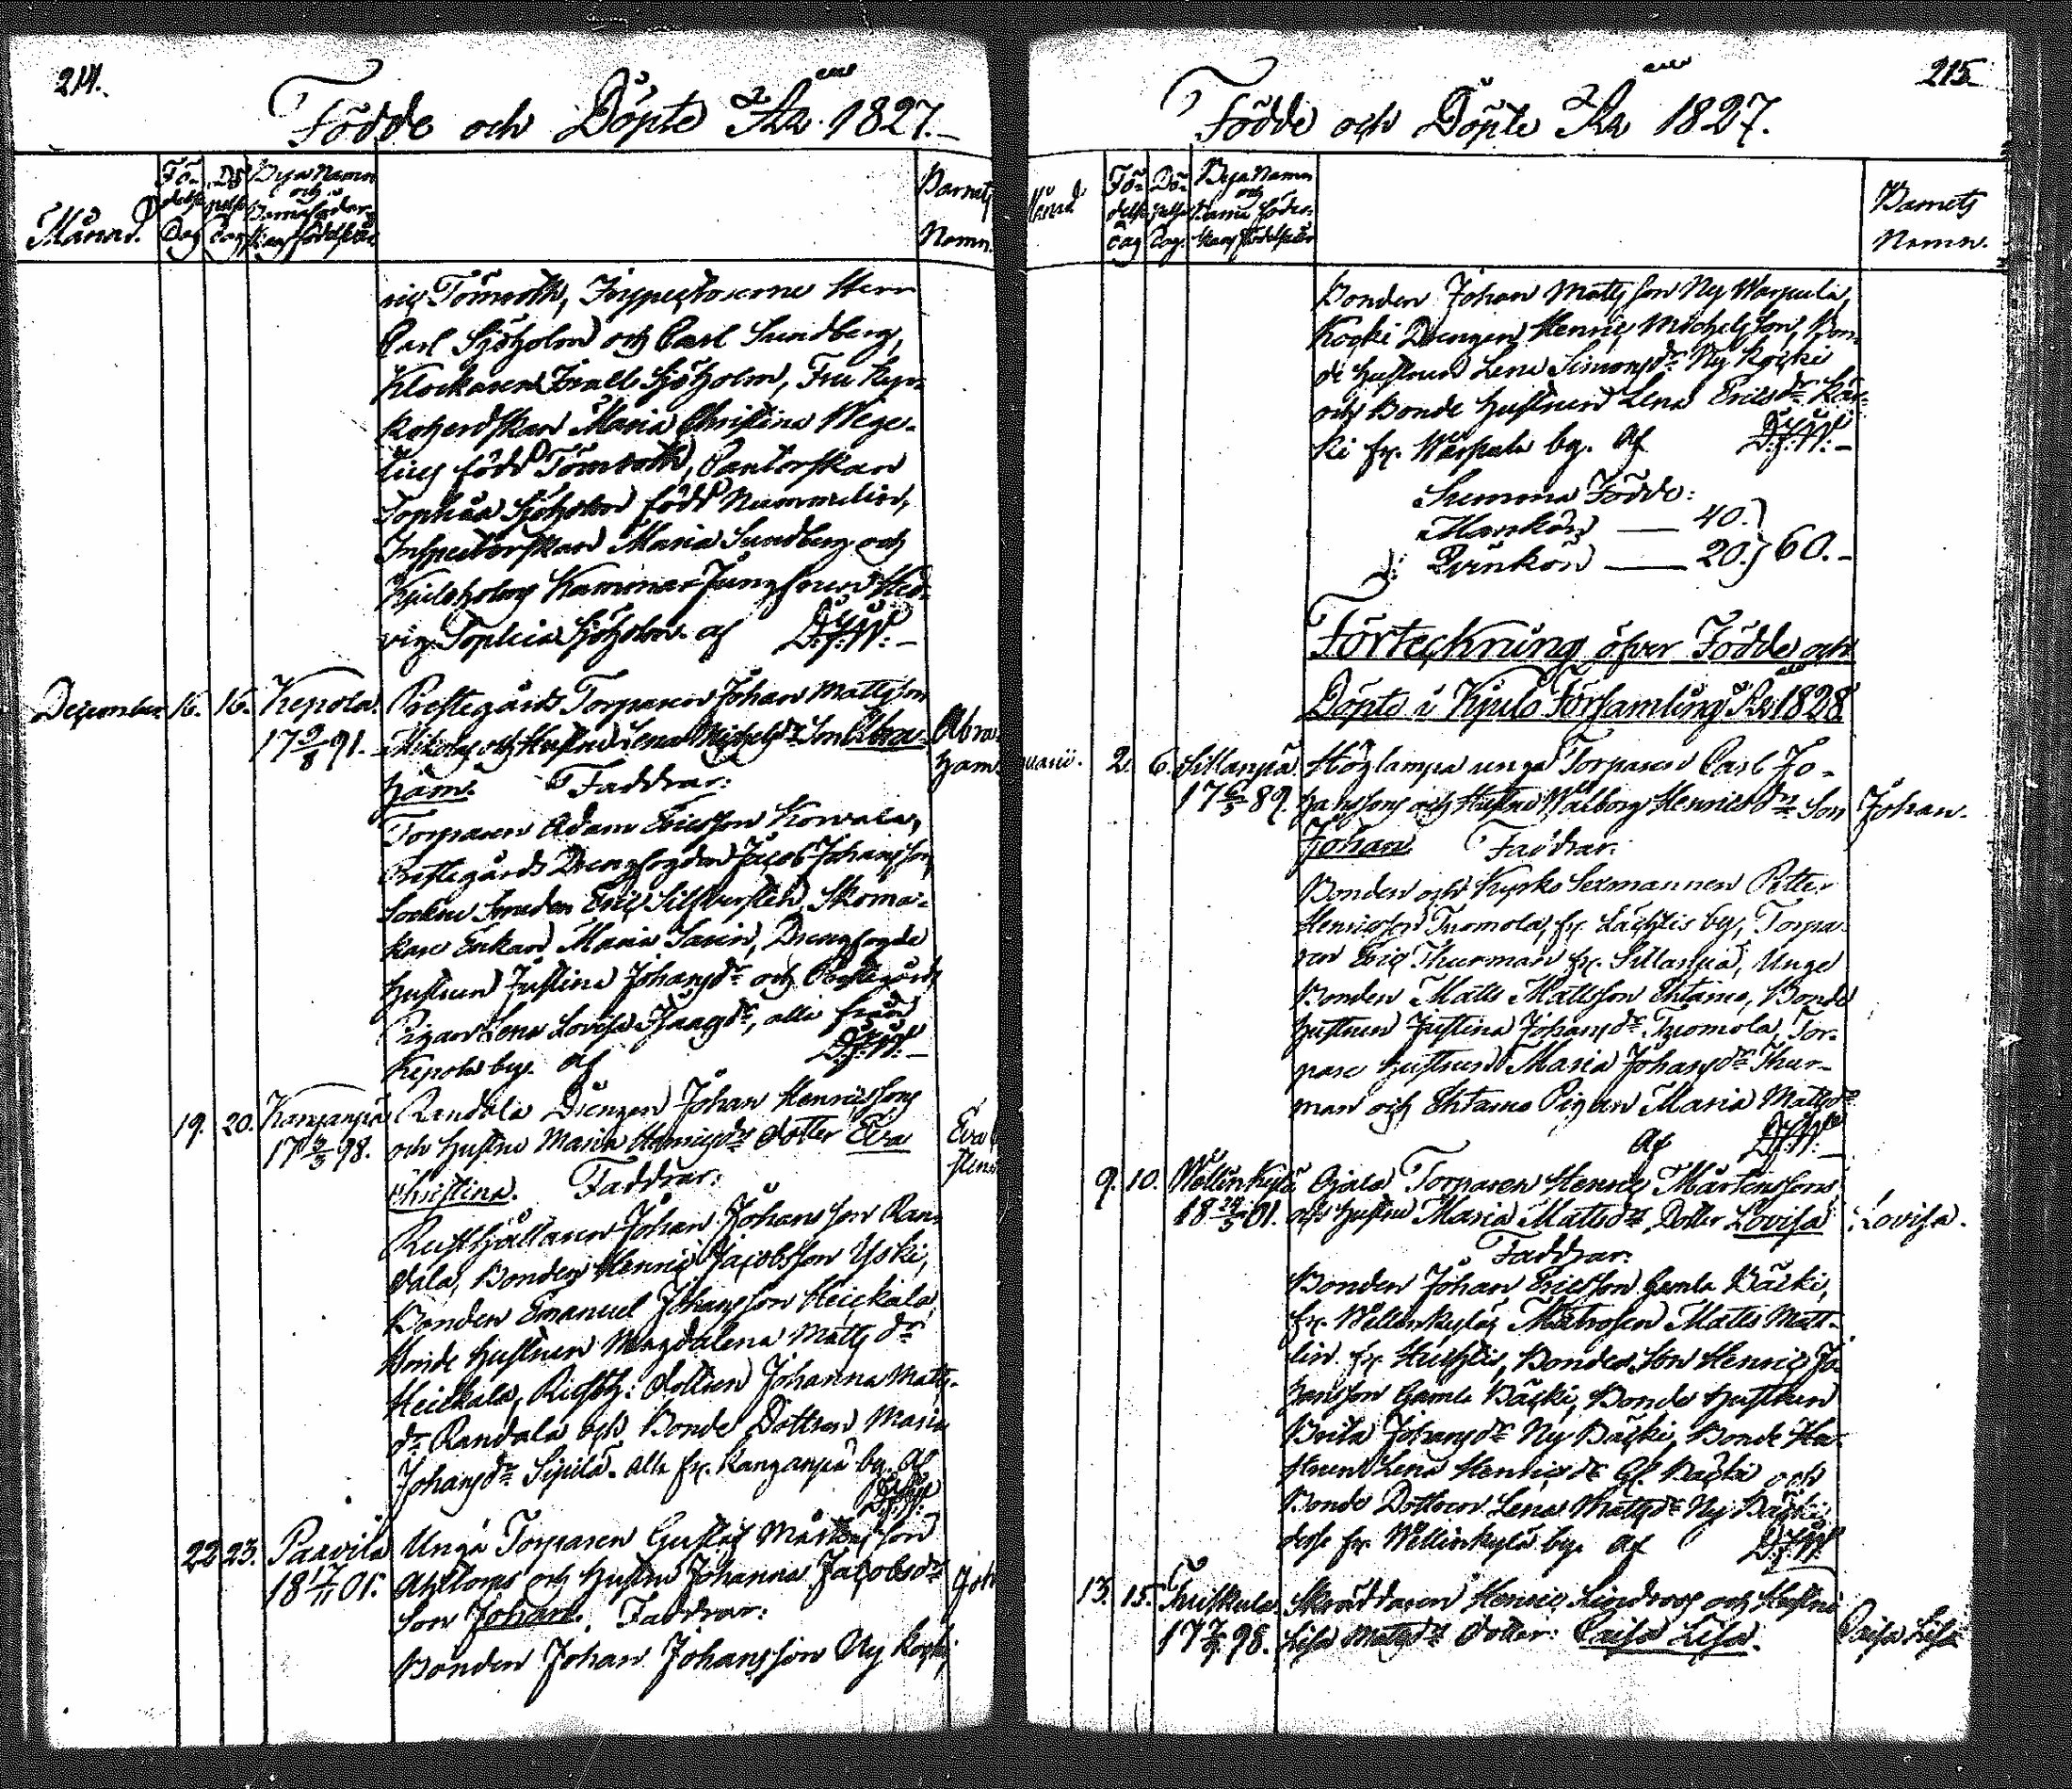 214.
Födde och Döpte År 1827.
Månad.
Fö-
delse
Dag
Dö
pelse
Dag
Bya Namn
och
Barnaföder-
skans födelseår
Barnets
Namn.
ric Tömroth, Inspectorerne Herr
Carl Sjöholm och Carl Sundberg,
Klockaren Israel Sjöholm, Fru Kyr-
koherdskan Maria Christina Wege-
lius född Tömroth, Cantorskan
Sophia Sjöholm född Nummelin,
Inspectorskan Maria Sundberg och
Kjuloholms Kammar Jungfrun Hed-
vig Sophia Sjöholm. af D.J.W. –
December 16. 16. Kepola. Prestegårds Torparen Johan Mattsson
17 9/8 91. och Hustru Lena Michelsdr Son Abra- Abra-
ham. Faddrar: ham.
Torparen Adam Ericsson Korvala,
Prestegårds Drengfogden Jacob Johansson,
Sockne Smeden Eric Silfversten, Skoma-
kare Enkan Maria Sarin, Drengfogde
Hustrun Justina Johansdr och Prestegårds
Pigan Lena Lovisa Isaagdr, alla från
Kepola by. af D.J.W. –
19. 20. Kanzanpä Randala Drengen Johan Henricssons
17 98. och Hustru Maria Henricsdr dotter Eva Eva
Christina. Faddrar:
Rusthållaren Johan Johansson Ran-
dala, Bonden Henric Jacobsson Yski,
Bonden Emanuel Johansson Heickala,
Bonde Hustrun Magdalena Matts dr
Heickala, Rusth: dottren Johanna Matts-
dr Randala och Bonde Dottren Maria
Johansdr Sipilä. alla fr. Kanzanpä by. Af
D.J.W.
22 23. Paavila Unga Torparen Gustaf Mårtensson
18 17/11 01. och Hustru Johanna Jacobsdr Joh
Son Johan. Faddrar:
Bonden Johan Johansson Ny Koski,
215.
Födde och Döpte År 1827.
Månad
Fö-
delse
Dag
Dö-
pelse
Dag.
Bya Namn
och
Barna föder-
skans födelseår
Barnets
Namn.
Bonden Johan Mattsson Ny Warpula,
Koski Drengen Henric Michelsson, Bon-
de Hustrun Lena Simonsdr Ny Koski
och Bonde Hustrun Lena Ericsdr Kos-
ki fr. Warpula by. Af D.J.W. –
Summa Födde:
Mankön — 40.
Qvinkön — 20. } 60. –
Förteckning öfver Födde och
Döpte i Kjulo Församling År 1828
nuarii. 2. 6. Sillanpä. Höglampa unga Torparen Carl Jo-
17 6/5 89. hanssons och Hustru Walborg Henricsdr Son Johan.
Johan. Faddrar:
Bonden och Kyrko Sexmannen Petter
Henricsson Tuomola, fr. Lächtis by, Torpa-
ren Eric Thurman fr. Sillanpä, Unga
Bonden Matts Mattsson Ehtamo, Bonde
Hustrun Justina Johansdr Tuomola, Tor-
pare Hustrun Maria Johansdr Thur-
man och Ehtamo Pigan Maria Mattsdr
Af D.J.W. –
9. 10. Wellinkylä Ojala Torparen Henric Mårtenssons
18 29/5 01. och Hustru Maria Mattsdr Dotter Lovisa Lovisa.
Faddrar:
Bonden Johan Ericsson Gamla Bäcki,
fr. Wellenkylä, Matrosen Matts Matt-
lin fr. Huchtis, Bonde Son Henric Jo-
hansson Gamla Bäcki, Bonde Hustrun
Brita Johansdr Ny Bäcki, Bonde Hu-
strun Lena Henricsdr Gl. Bäcki och
Bonde Dottren Lena Mattsdr Ny Bäcki,
desse fr. Wellinkylä by. Af D.J.W
13. 15. Tuiskula. Skräddaren Henric Lindroos och Hustru
17 98. Lisa Mattsdr dotter: Caisa Lisa. Caisa Lisa